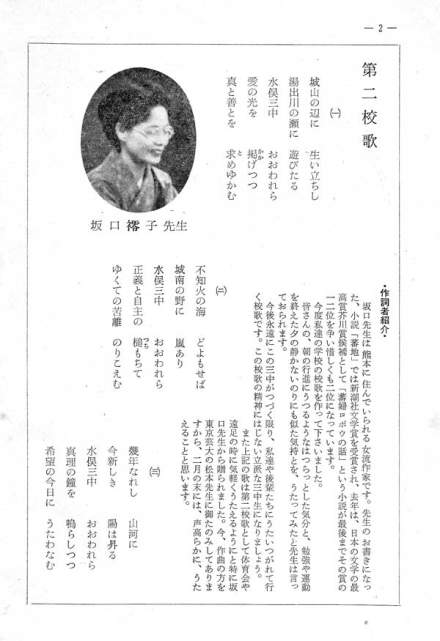 — 2 —
第二校歌
(一)
城山の辺に 生い立ちし
湯出川の瀬に 遊びたる
水俣三中 おおわれら
愛の光を 掲げつつ
かか
真と善とを 求めゆかむ
と
坂口䙥子先生
(二)
不知火の海 どよもせば
城南の野に 嵐あり
水俣三中 おおわれら
正義と自主の 槌もちて
つち
ゆくての苦難 のりこえむ
(三)
幾年なれし 山河に
今新しき 陽は昇る
水俣三中 おおわれら
真理の鐘を 鳴らしつつ
希望の今日に うたわなむ
・作詞者紹介・
坂口先生は熊本に住んでいられる女流作家です。先生のお書きになっ
た、小説「蕃地」では新潮社文学賞を受賞され、去年は、日本の文学の最
高賞芥川賞候補として「蕃婦ロポウの話」という小説が最後までその賞の
一二位を争い惜しくも二位になっています。
今度私達の学校の校歌を作って下さいました。
皆さんの、朝の行進にうつるようなはつらっとした気分と、勉強や運動
を終えた夕の静かないのりにも似た気持とを、うたってみたと先生は言っ
ておられます。
今後永遠にこの三中がつづく限り、私達や後輩たちにうたいつがれて行
く校歌です。この校歌の精神にはじない立派な三中生になりましょう。
また上記の歌は第二校歌として体育会や
遠足の時に気軽くうたえるようにと特に坂
口先生から贈られました。今、作曲の方を
東京芸大の松本先生に御たのみしてありま
すから、二月の末には、声高らかに、うた
えることと思います。